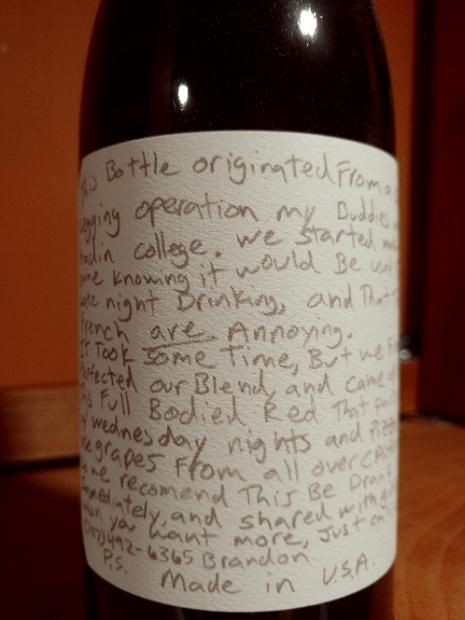 This Bottle originated From a
operation my Buddies
had in college. we Started
wine knowing it would Be used
late night Drinking, and That
French are Annoying.
It Took some Time, But we
Perfected our Blend, and came
This Full Bodied Red That
wednesday nights and
grapes From all over
we recomend This Be Drank
immediately, and shared with
when you want more, Just
(707) 492-6365 Brandon
P.S. Made in U.S.A.